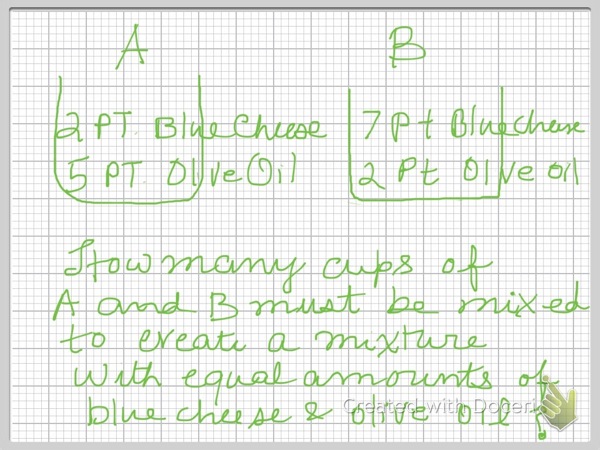 A B
2 PT. Blue Cheese 7 Pt Blue cheese
5 PT. Olive Oil 2 Pt Olive oil
How many cups of
A and B must be mixed
to create a mixture
with equal amounts of
blue cheese & olive oil ?
Created with Doceri